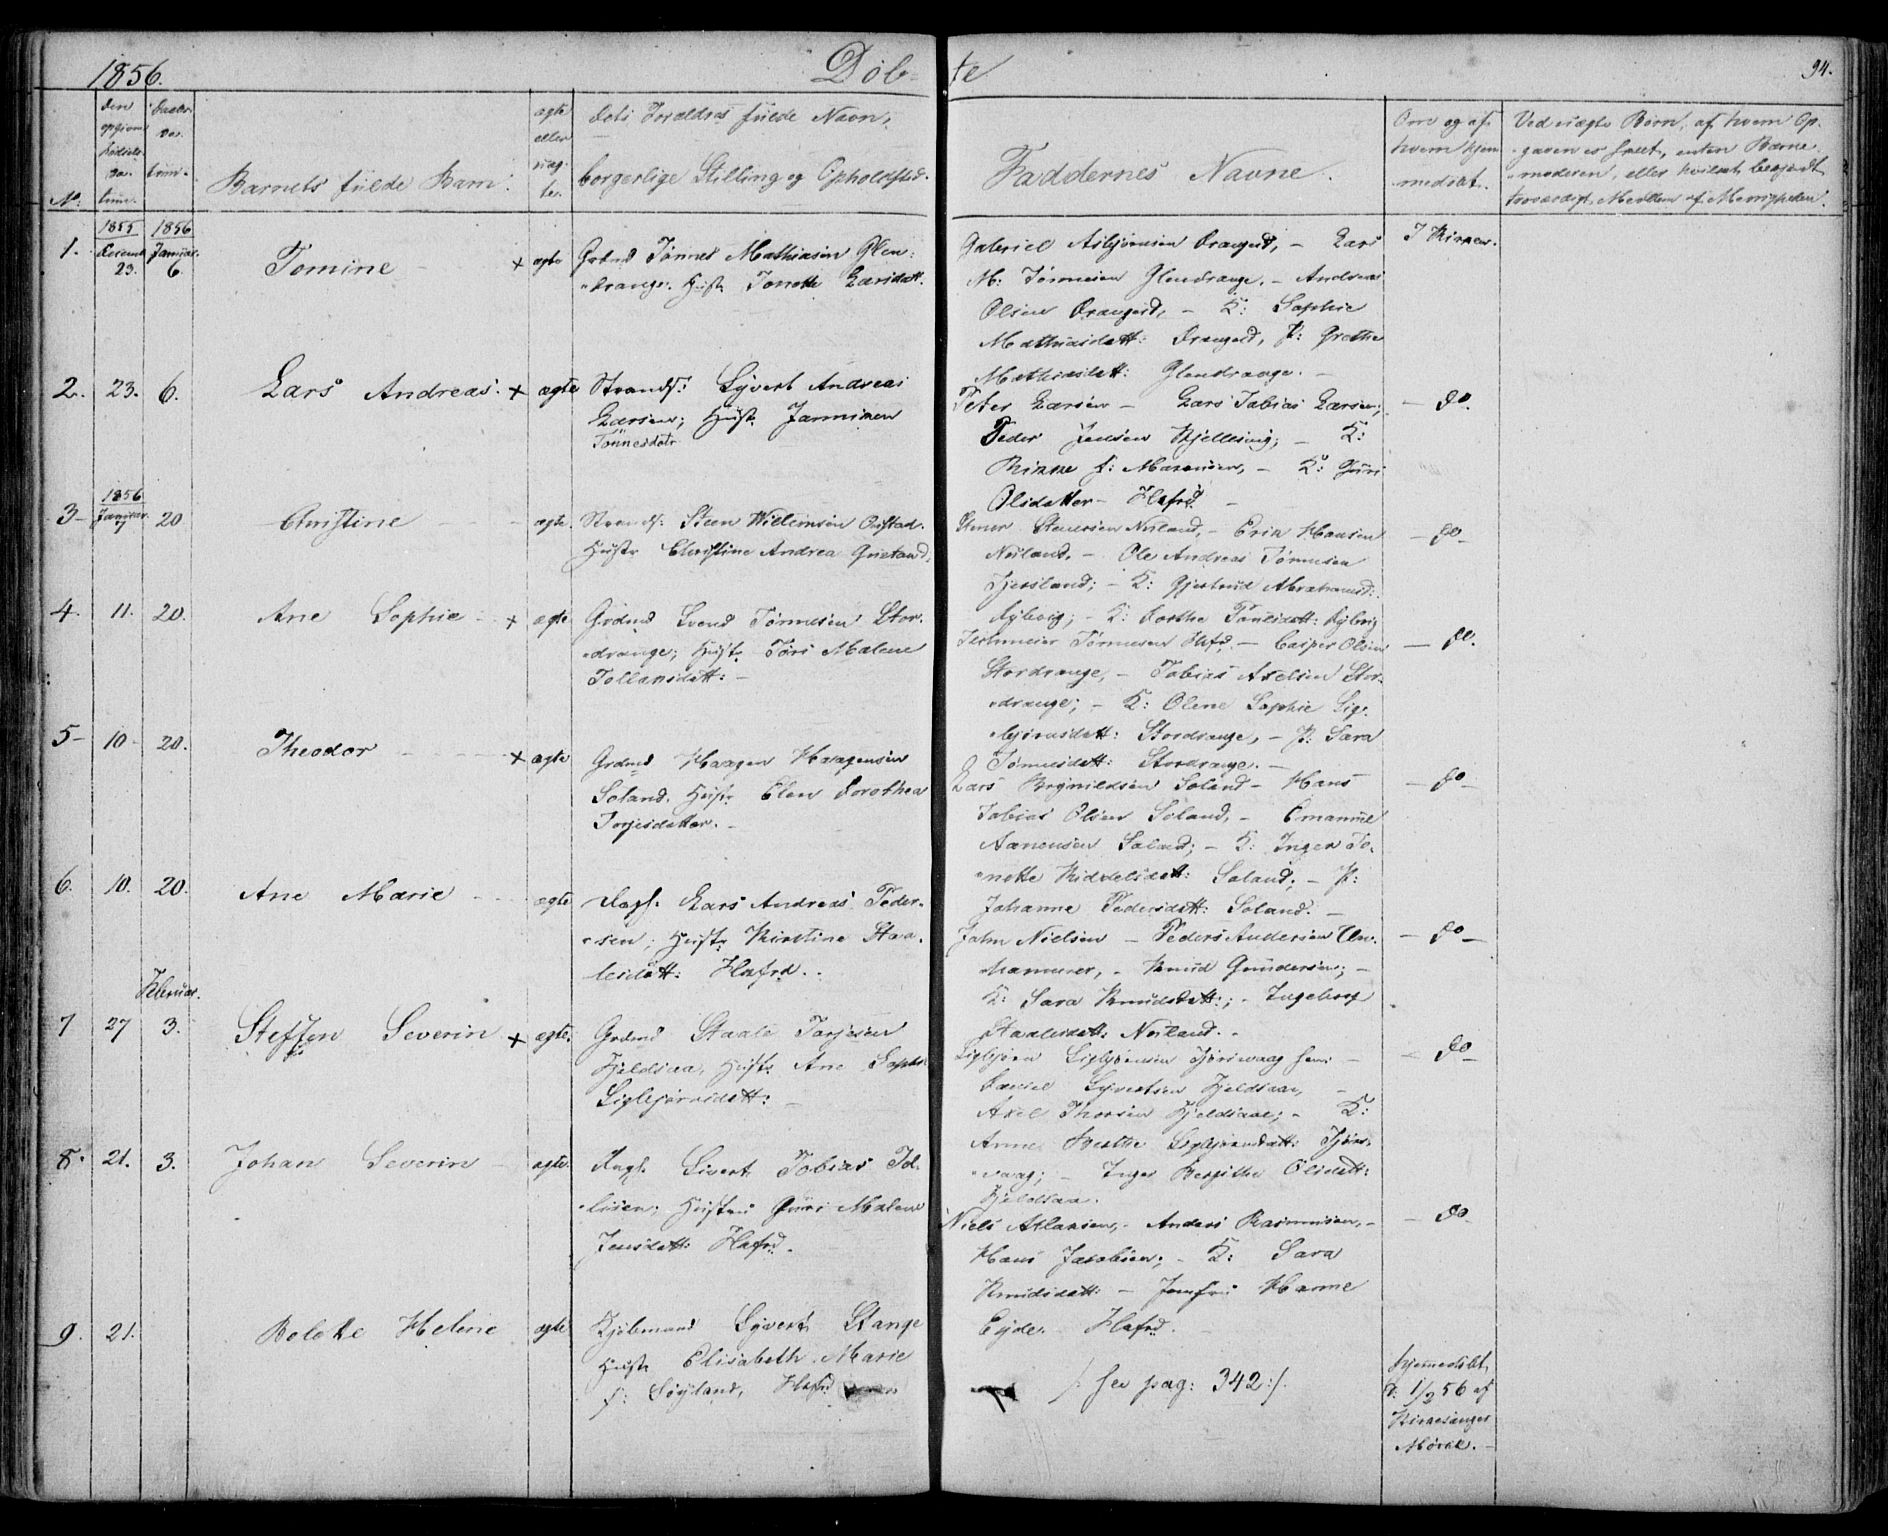 1856.
Døb-te
94.
No:
Den opgivne Fødsels-Datum.
Daabs-Datum.
Barnets fulde Navn.
ægte eller uægte.
dets Forældres fulde Navn,
borgerlige Stilling og Opholdssted.
Faddernes Navne.
Om og af hvem hjemmedøbt.
Ved uægte Børn, af hvem Op-
gaven er skeet, enten Barne-
moderen, eller hvilket
troværdigt Medlem af Menigheden.
1855 1856
1. Decemb. 23. Januar 6. Tomine × ægte
Grdmd Tønnes Mathiasen Glen-
drange. Hustr Tonette Larsdatt.
Gabriel Asbjørnsen Drangsd, - Lars
M: Tønnesen Glendrange. - Andreas
Olsen Drangsd, - K: Sophie
Mathiasdatt: Drangsd, P: Grethe
Mathiasdatt: Glendrange. -
I Kirken.
2. 23. 6. Lars Andreas. × ægte
Strands: Syvert Andreas
Larsen; Hustr Jannikken
Tønnesdatr
Peter Larsen - Lars Tobias Larsen;
Peder Jensen Kjellesvig; - K:
Rikke f: Marcusen, - K: Guri
Olsdatter - Hafrd -
- do.
1856
3 - Januar 7 20 Christine ægte.
Strands: Steen Willemsen
Hustr Christine Andrea
Stenersen Neiland, - Erik Hansen
Neiland. - Ole Andreas Tønnesen
Fjersland; - K: Gjertrud Abrahamsd:
K: Dorthe
- do -
4. 11. 20. Ane Sophie × ægte
Grdmd Svend Tønnesen Stor-
drange; Hustr Tori Malene
Tollaksdatt: -
Tønnesen Hafrd. - Casper Olsen
Stordrange, - Tobias Axelsen Stor-
drange; - K: Olene Sophie Sig-
bjørnsdatt: Stordrange, - P: Sara
Tønnesdatt: Stordrange. -
- do.
5 - 10 - 20. Theodor × ægte
Grdmd Haagen Haagensen
Soland. Hustr Elen Dorothea
Torjesdatter. -
Lars Brynildsen Soland - Hans
Tobias Olsen Soland, - Emanuel
Aanensen Soland; - K: Inger To-
nette Kiddelsdatt: Soland; - P:
Johanne Pedersdatt: Soland. -
- do -
6. 10. 20. Ane Marie ægte
Dags. Lars Andreas Peder-
sen; Hustr Kirstine Staa-
lesdatt: Hafrd..
John Nielsen - Peder Andersen Uhr-
mammer, - Knud Gundersen; -
K: Sara Knudsdatt:; - Ingeborg
Staalesdatt: Neiland. -
- do -
Februar.
7 27 3. Steffen Severin × ægte.
Grdmd Staale Torjesen
Fjeldsaa, Hustr Ane Sophie
Sigbjørnsdatt: -
Sigbjørn Sigbjørnsen -
Daniel Syvertsen Fjeldsaa, -
Axel Thorsen Fjeldsaa; - K:
Anne Berthe Sigbjørnsdatt: Tjørs-
vaag; - Inger Bergithe Olsdatt:
Fjeldsaa.
- do -
8. 21. 3. Johan Severin - ægte.
Dags. Sivert Tobias Tol-
lisen; Hustru Guri Malene
Jensdatt: Hafrd.
Niels Atlaksen, - Anders Rasmussen, -
Hans Jacobsen; - K: Sara
Knudsdatt: - Jomfru Hanne
Eyde. Hafrd. -
- do -
9. 21. Bolette Helene ægte
Kjøbmand Syvert Stange
Hustr Elisabeth Marie
f: Søyland, Hafrd
/: see pag: 342:/.
hjemmedøbt
d: 1/2 56 af
Kirkesanger
Mørk. -